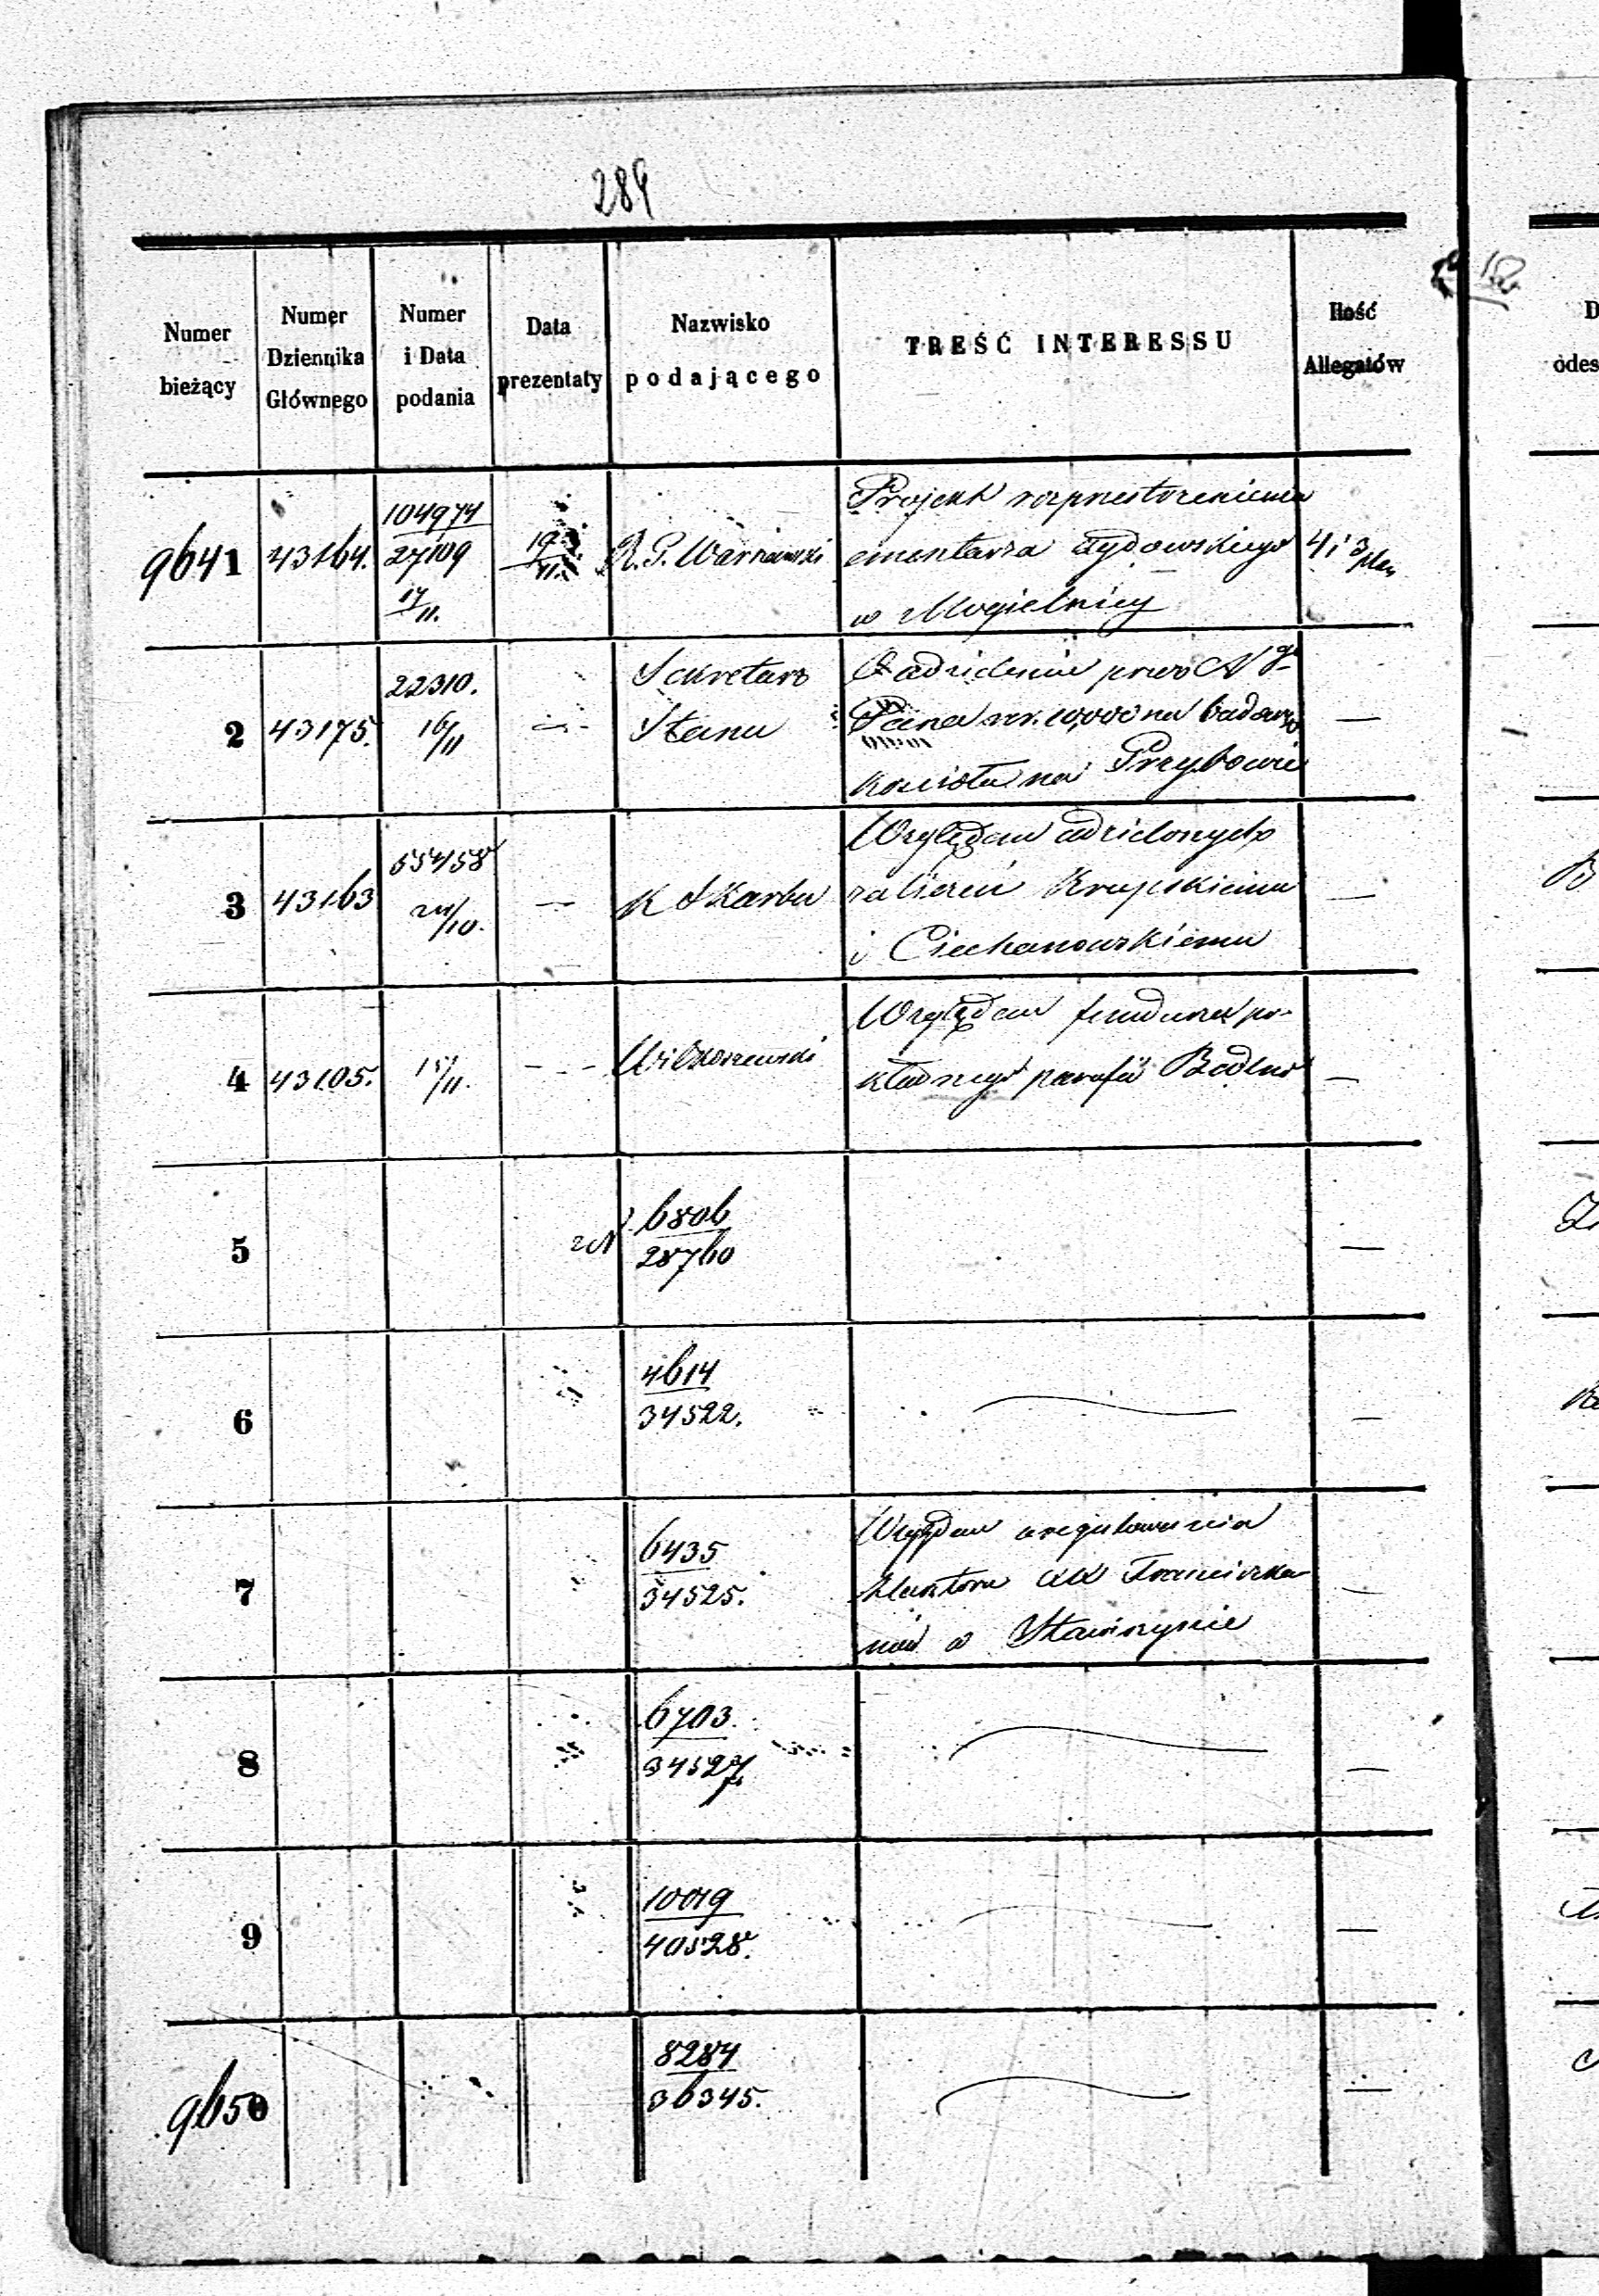 289
Numer bieżący
Numer Dziennika Głównego
Numer i Data podania
Data prezentaty
Nazwisko podającego
TREŚĆ INTERESSU
Ilość Allegatów
9641
43164.
104974
27109
17/11.
19/11.
R. G. Warszawski
Projekt rozprzestrzenienia
cmentarza żydowskiego
w Mogielnicy
4 i 3 plan
2
43175.
22310.
16/11
Sekretarz
Stanu
udzielenie przez N go
Pana rsr. 10,000 na budowę
kościoła na Grzybowie
—
3
43163
55458
24/10.
—
K Skarbu
Względem udzielonych
zaliczeń Krupskiemu
i Ciechanowskiemu
—
4
43105.
15/11.
- - -
Względem funduszu po-
kładnego parafii Bedlno
—
5
6806
28760
—
6
4614
34522.
—
7
6435
34525.
Względem uregulowania
klasztoru XX Franciszka-
nów w
—
8
6703.
34527
—
9
10019
40528.
—
9650
8284
36345.
—
D
odes